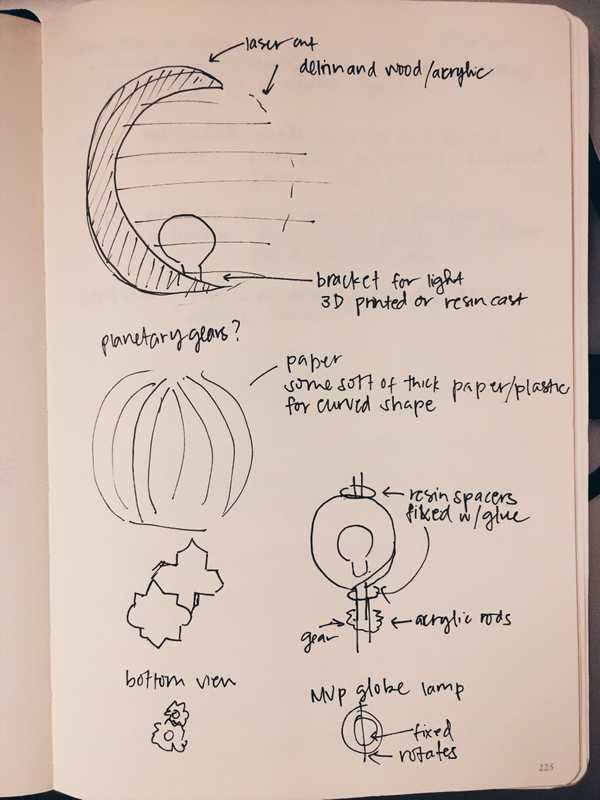 laser cut
delrin and wood/acrylic
bracket for light
3D printed or resin cast
planetary gears?
paper
some sort of thick paper/plastic
for curved shape
resin spacers
fixed w/glue
gear
acrylic rods
bottom view
MVP globe lamp
fixed
rotates
225